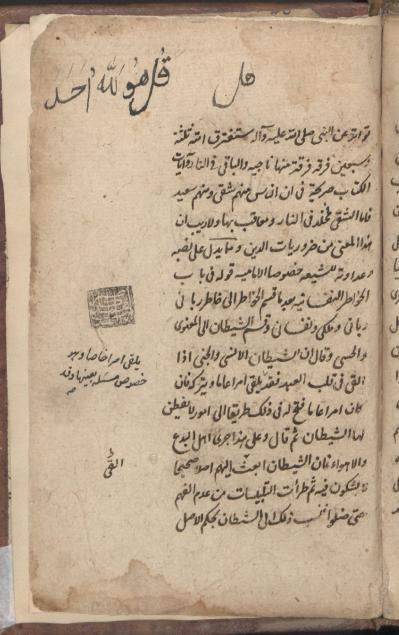 قل
قل هو الله احد
تواتر عن النبى صلى الله عليه وآله ستفترق امته ثلثة
وسبعين فرقة فرقة منها ناجيه والباقى فى النار وآيات
الكتاب صريحة فى ان الناس منهم شقى ومنهم سعيد
فاما الشقى مخلد فى النار ومعاقب بها ولاريب ان
هذا المعنى من ضروريات الدين ومما يدل على نصبه
وعداوته للشيعه خصوصا الاماميه قوله فى باب
الخواطر بعد ما قسم الخواطر الى خاطر
ربانى وملكى ونفسانى وقسم الشيطان الى المعنوى
والحسى وقال ان الشيطان الانسى والجنى اذا
القى فى قلب العبد فقد يلقى امرا عاما ويتركه فان
كان امرا عاما فتح له فى ذلك طريقا الى امور لا يفطن
لها الشيطان ثم قال وعلى هذا جرى اهل البدع
والاهواء فان الشيطان القى اليهم اصلا صحيحا
لا يشكون فيه ثم طرأت التلبيسات من عدم الفهم
حتى ضلوا فنسب ذلك الى الشيطان بحكم الاصل
يلقى امرا خاصا وهو
خصوص مسئلة بعينها وقد
صح
القى